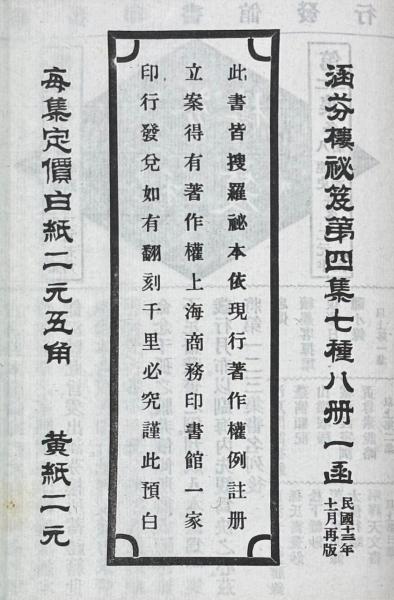 涵芬樓祕笈第四集七種八册一函
民國十三年
十一月再版
此書皆搜羅祕本依現行著作權例註册
立案得有著作權上海商務印書館一家
印行發兌如有翻刻千里必究謹此預白
每集定價白紙二元五角 黃紙二元